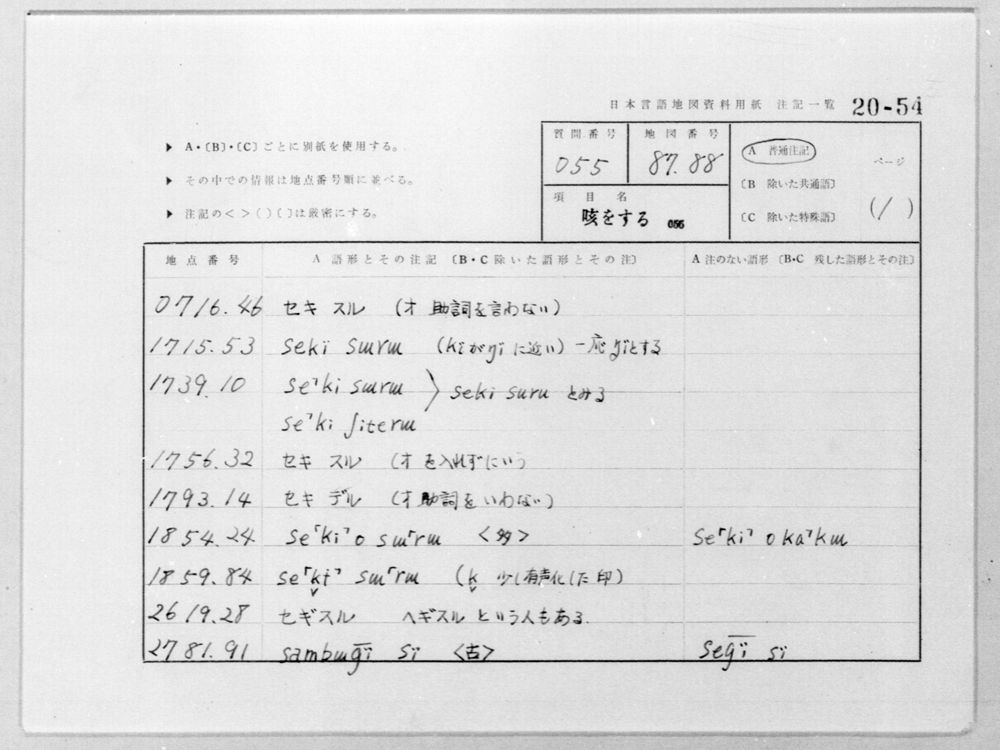 日本言語地図資料用紙 注記一覧 20-54
▶ A・〔B〕・〔C〕ごとに別紙を使用する。
▶ その中での情報は地点番号順に並べる。
▶ 注記の< >( )〔 〕は厳密にする。
質問番号 地図番号
055 87.88
項目名
咳をする 055
A 普通注記
〔B 除いた共通語〕
〔C 除いた特殊語〕
ページ
(1/ )
地点番号 A 語形とその注記〔B・C除いた語形とその注〕 A 注のない語形〔B・C 残した語形とその注〕
0716.46 セキ スル (オ 助詞を言わない)
1715.53 seki sɯrɯ (kiがgiに近い) 一応giとする
1739.10 se˺ki sɯrɯ 〉 seki suru とみる
se˺ki ʃiterɯ
1756.32 セキ スル (オ を入れずにいう
1793.14 セキ デル (オ 助詞をいわない)
1854.24 se˹ki˺ o sɯ˹rɯ <多> se˹ki˺ o ka˺kɯ
1859.84 se˹k̬i˺ sɯ˹rɯ (k̬ 少し有声化した印)
2619.28 セギスル ヘギスル という人もある.
2781.91 sambɯḡï sï <古> seḡï sï